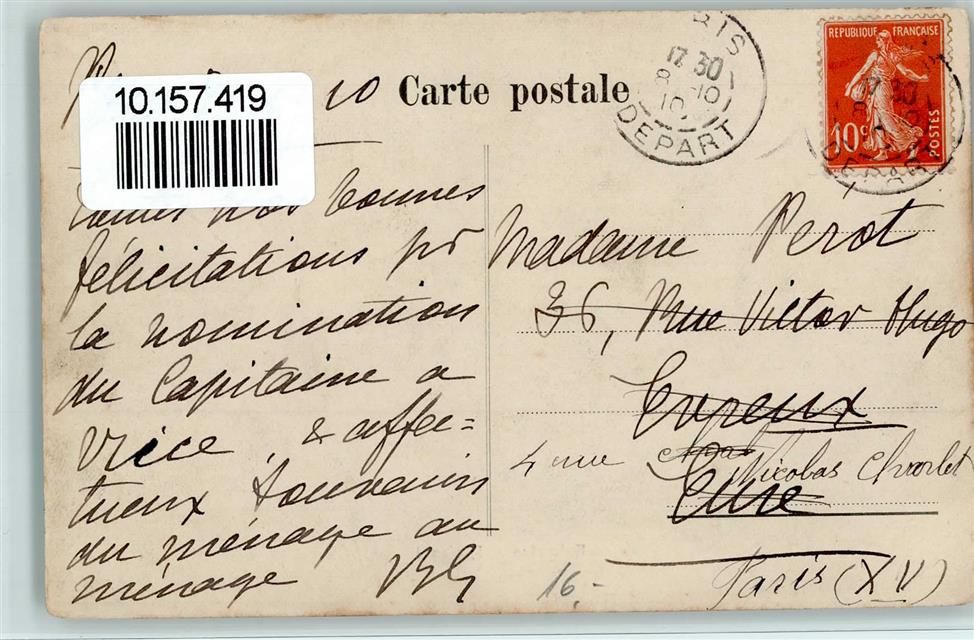 10.157.419
10
Carte postale
PARIS
17 30
8 10
10
DEPART
REPUBLIQUE FRANÇAISE
10c
POSTES
17 30
DEPART
nos bonnes
félicitations pr
la nomination
du Capitaine a
Vice, & affec=
tueux souvenirs
du ménage au
ménage
Madame Perot
36, Rue Victor Hugo
Evreux
4 rue Nicolas Charlet
Eure
Paris (XV)
16.-